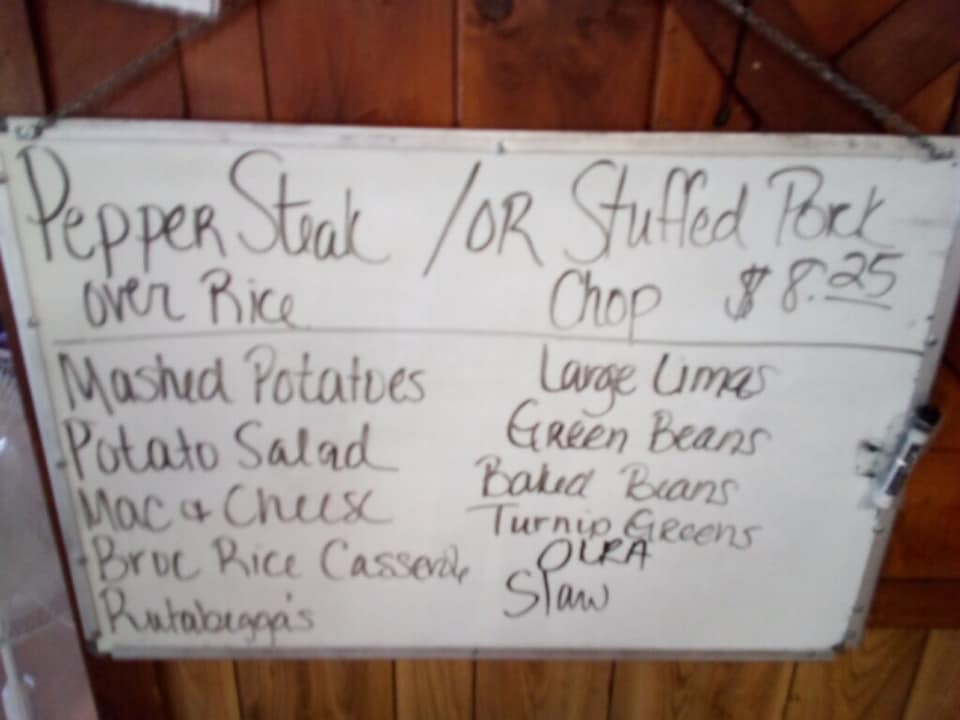 Pepper Steak /OR Stuffed Pork
over Rice Chop $8.25
Mashed Potatoes
Potato Salad
Mac & Cheese
Broc Rice Casserole
Rutabegga's
Large Limas
Green Beans
Baked Beans
Turnip Greens
OKRA
Slaw